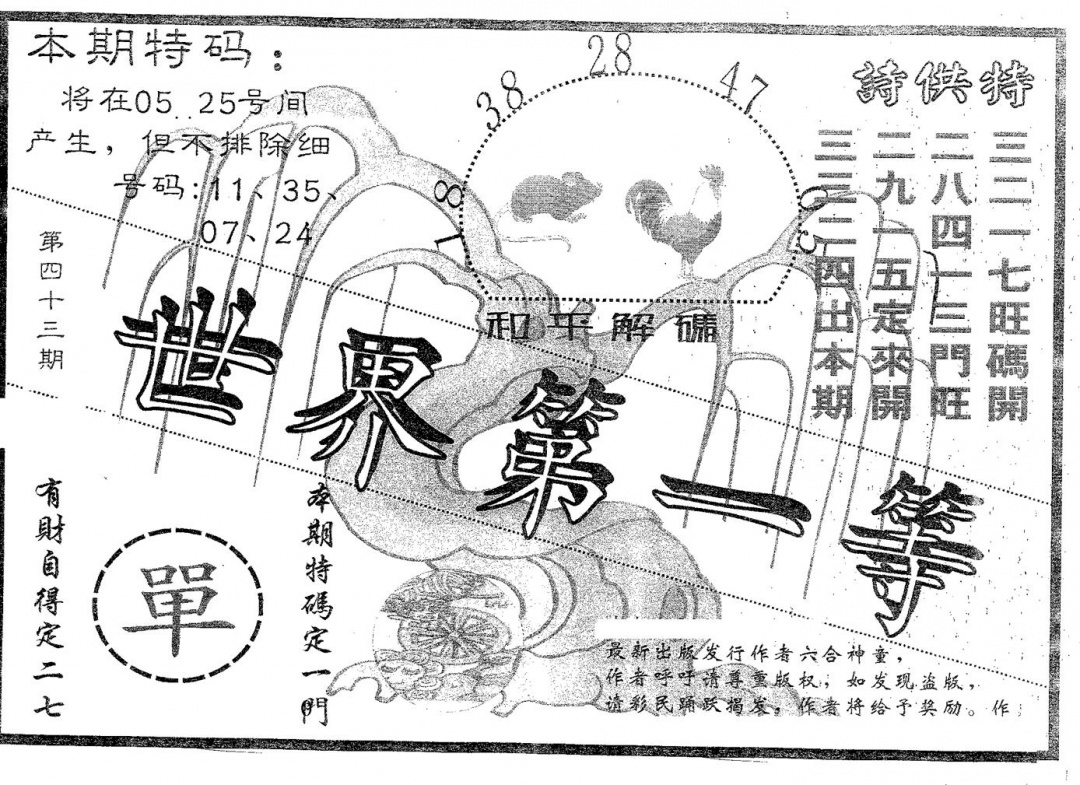 本期特码：
将在05..25号间
产生，但不排除细
号码:11、35、
07、24
第四十三期
18
38
28
47
05
和平解礦
特供詩
三二一七旺碼開
二八四一三門旺
二九一五定來開
三三二四出本期
世界第一等
有財自得定二七
單
本期特碼定一門
最新出版发行作者六合神童，
作者呼吁请尊重版权，如发现盗版，
请彩民踊跃揭发，作者将给予奖励。作